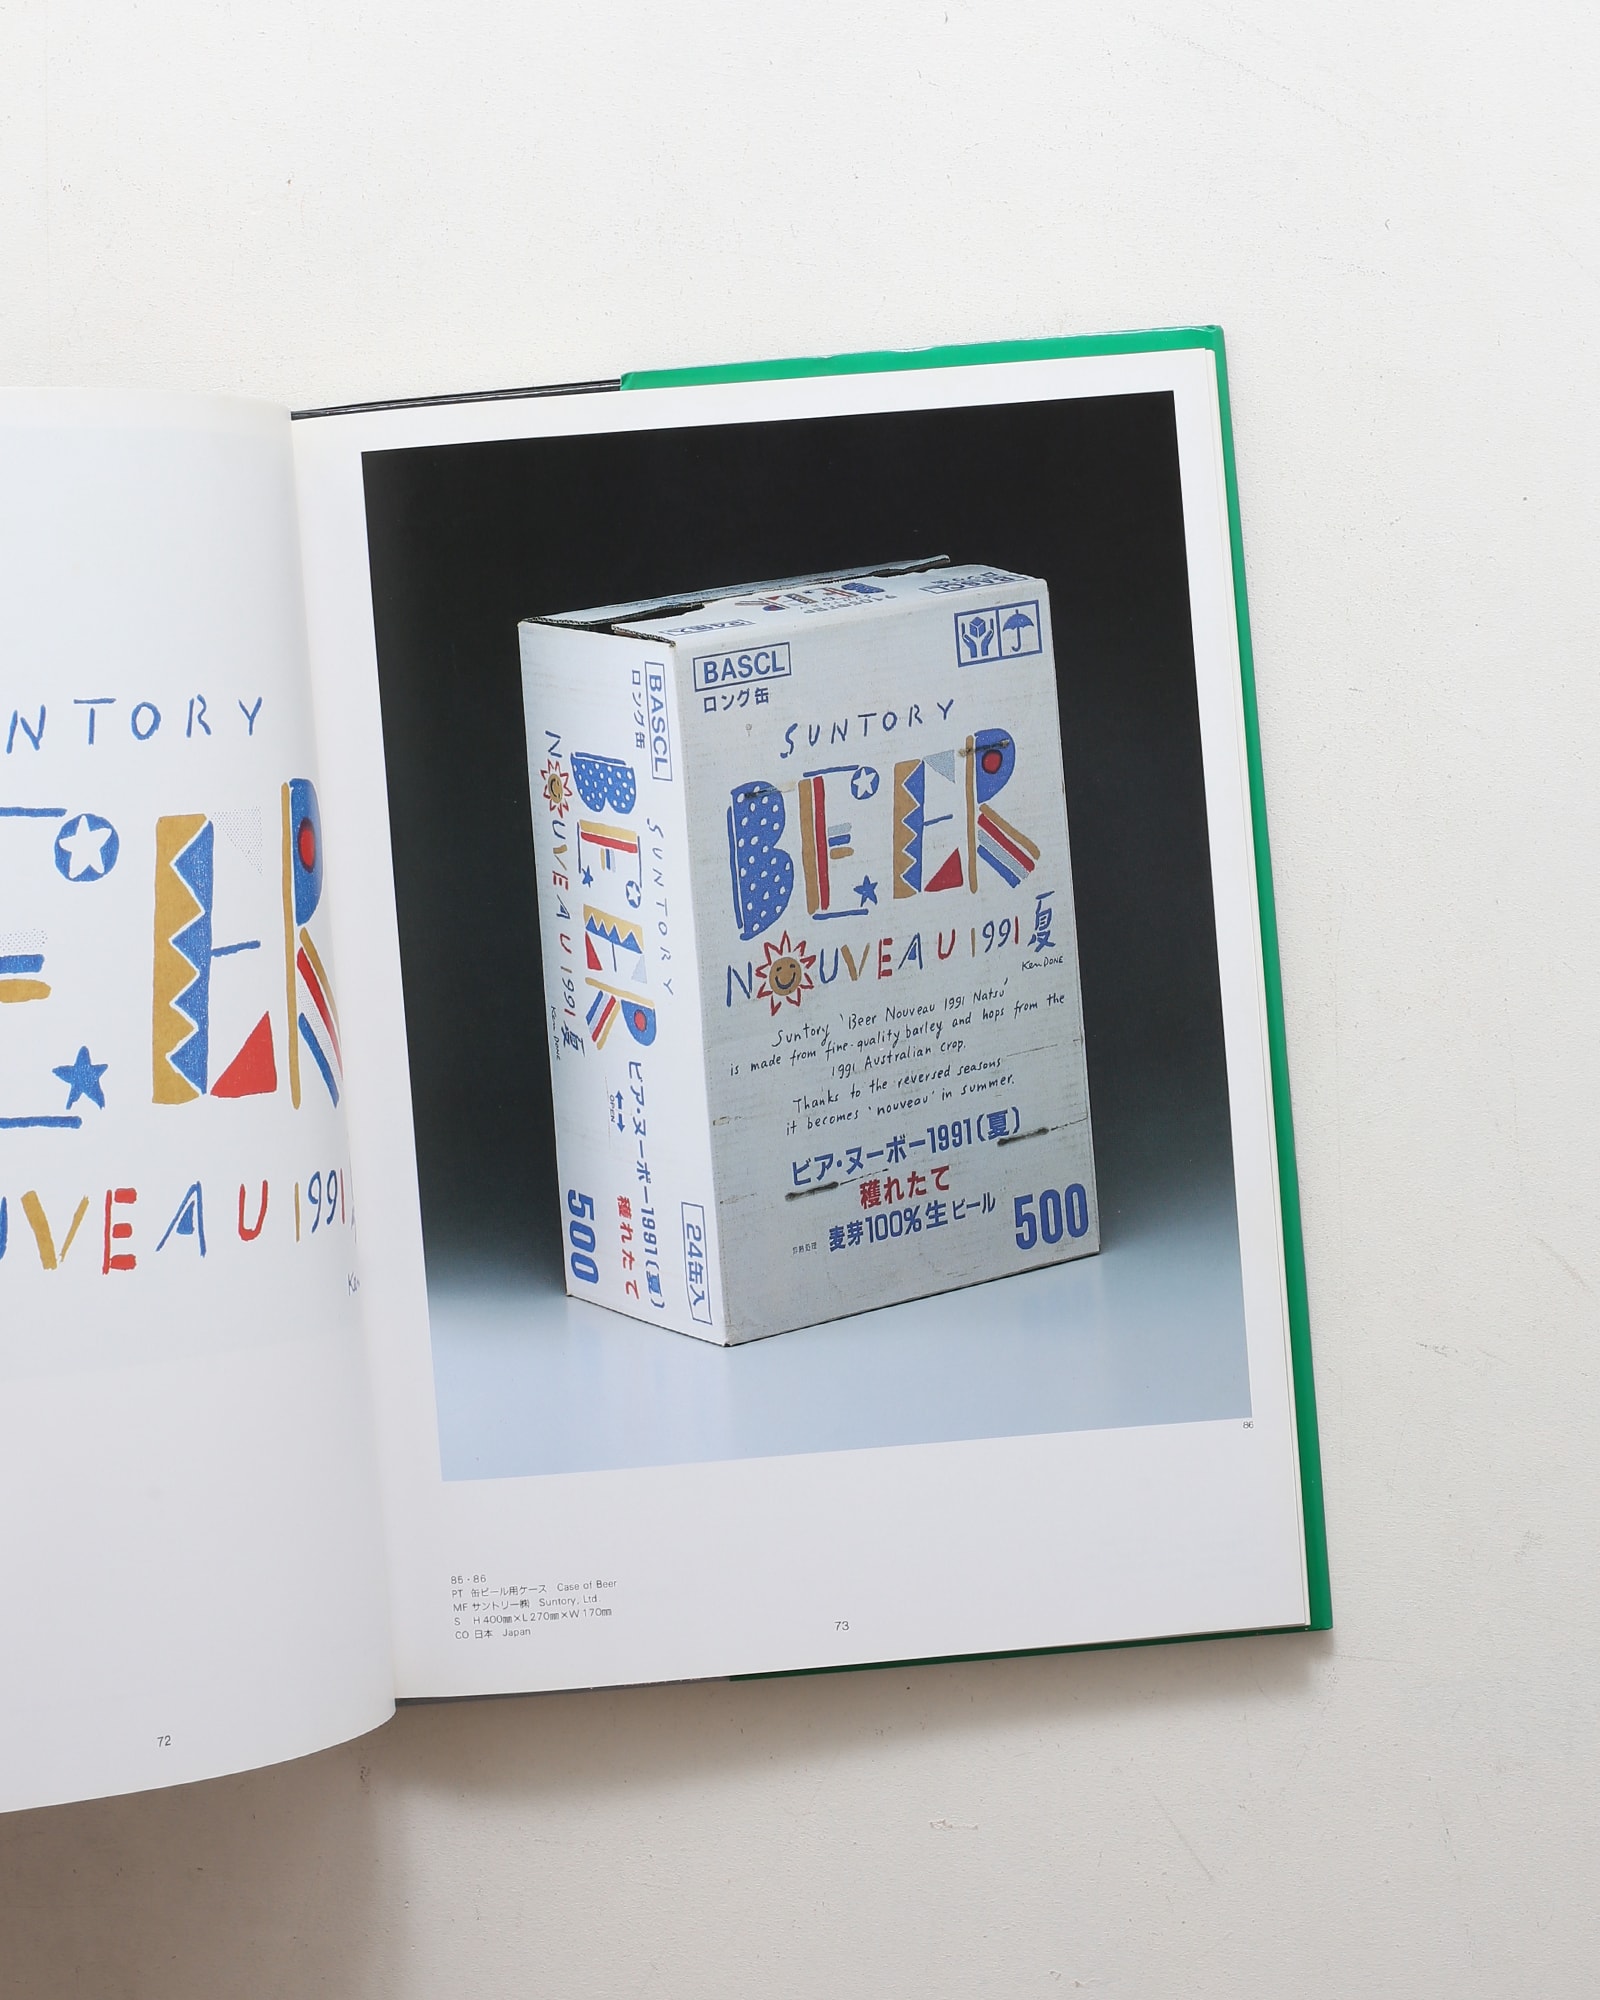 NTORY
UVEAU 1991
Ken
72
BASCL
ロング缶
SUNTORY
BEER
NOUVEAU 1991 夏
Ken DONE
ビア・ヌーボー1991(夏)
穫れたて
OPEN
24缶入
500
BEER
BASCL
BASCL
ロング缶
SUNTORY
BEER
NOUVEAU 1991 夏
Ken DONE
Suntory 'Beer Nouveau 1991 Natsu'
is made from fine-quality barley and hops from the
1991 Australian crop.
Thanks to the reversed seasons
it becomes 'nouveau' in summer.
ビア・ヌーボー1991(夏)
穫れたて
麦芽100%生ビール
500
86
85・86
PT 缶ビール用ケース Case of Beer
MF サントリー㈱ Suntory, Ltd.
S H400㎜×L270㎜×W170㎜
CO 日本 Japan
73